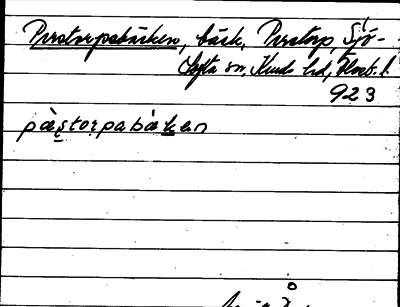 Perstorpabäcken, bäck, Perstorp, Sjö-
tofta sn, Kinds hd, Älvsb. l.
923
pæ̀storpabäken